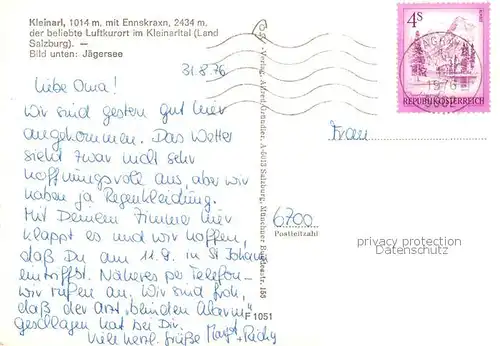 Kleinarl, 1014 m, mit Ennskraxn, 2434 m.
der beliebte Luftkurort im Kleinarltal (Land
Salzburg). —
Bild unten: Jägersee
31.8.76
4s
REPUBLIK ÖSTERREICH
1976
Liebe Oma!
Wir sind gestern gut hier
angekommen. Das Wetter
sieht zwar nicht sehr
hoffnungsvoll aus, aber wir
haben ja Regenkleidung.
Mit Deinem Zimmer hier
klappt es und wir hoffen,
daß Du am 11.9. in St Johann
eintriffst. Näheres per Telefon -
wir rufen an. Wir sind froh,
daß der Arzt „blinden Alarm"
geschlagen hat bei Dir.
Viele herzl. Grüße
Verlag A-5013 Salzburg, Münchner 155
F 1051
Frau
6700
Postleitzahl
privacy protection
Datenschutz